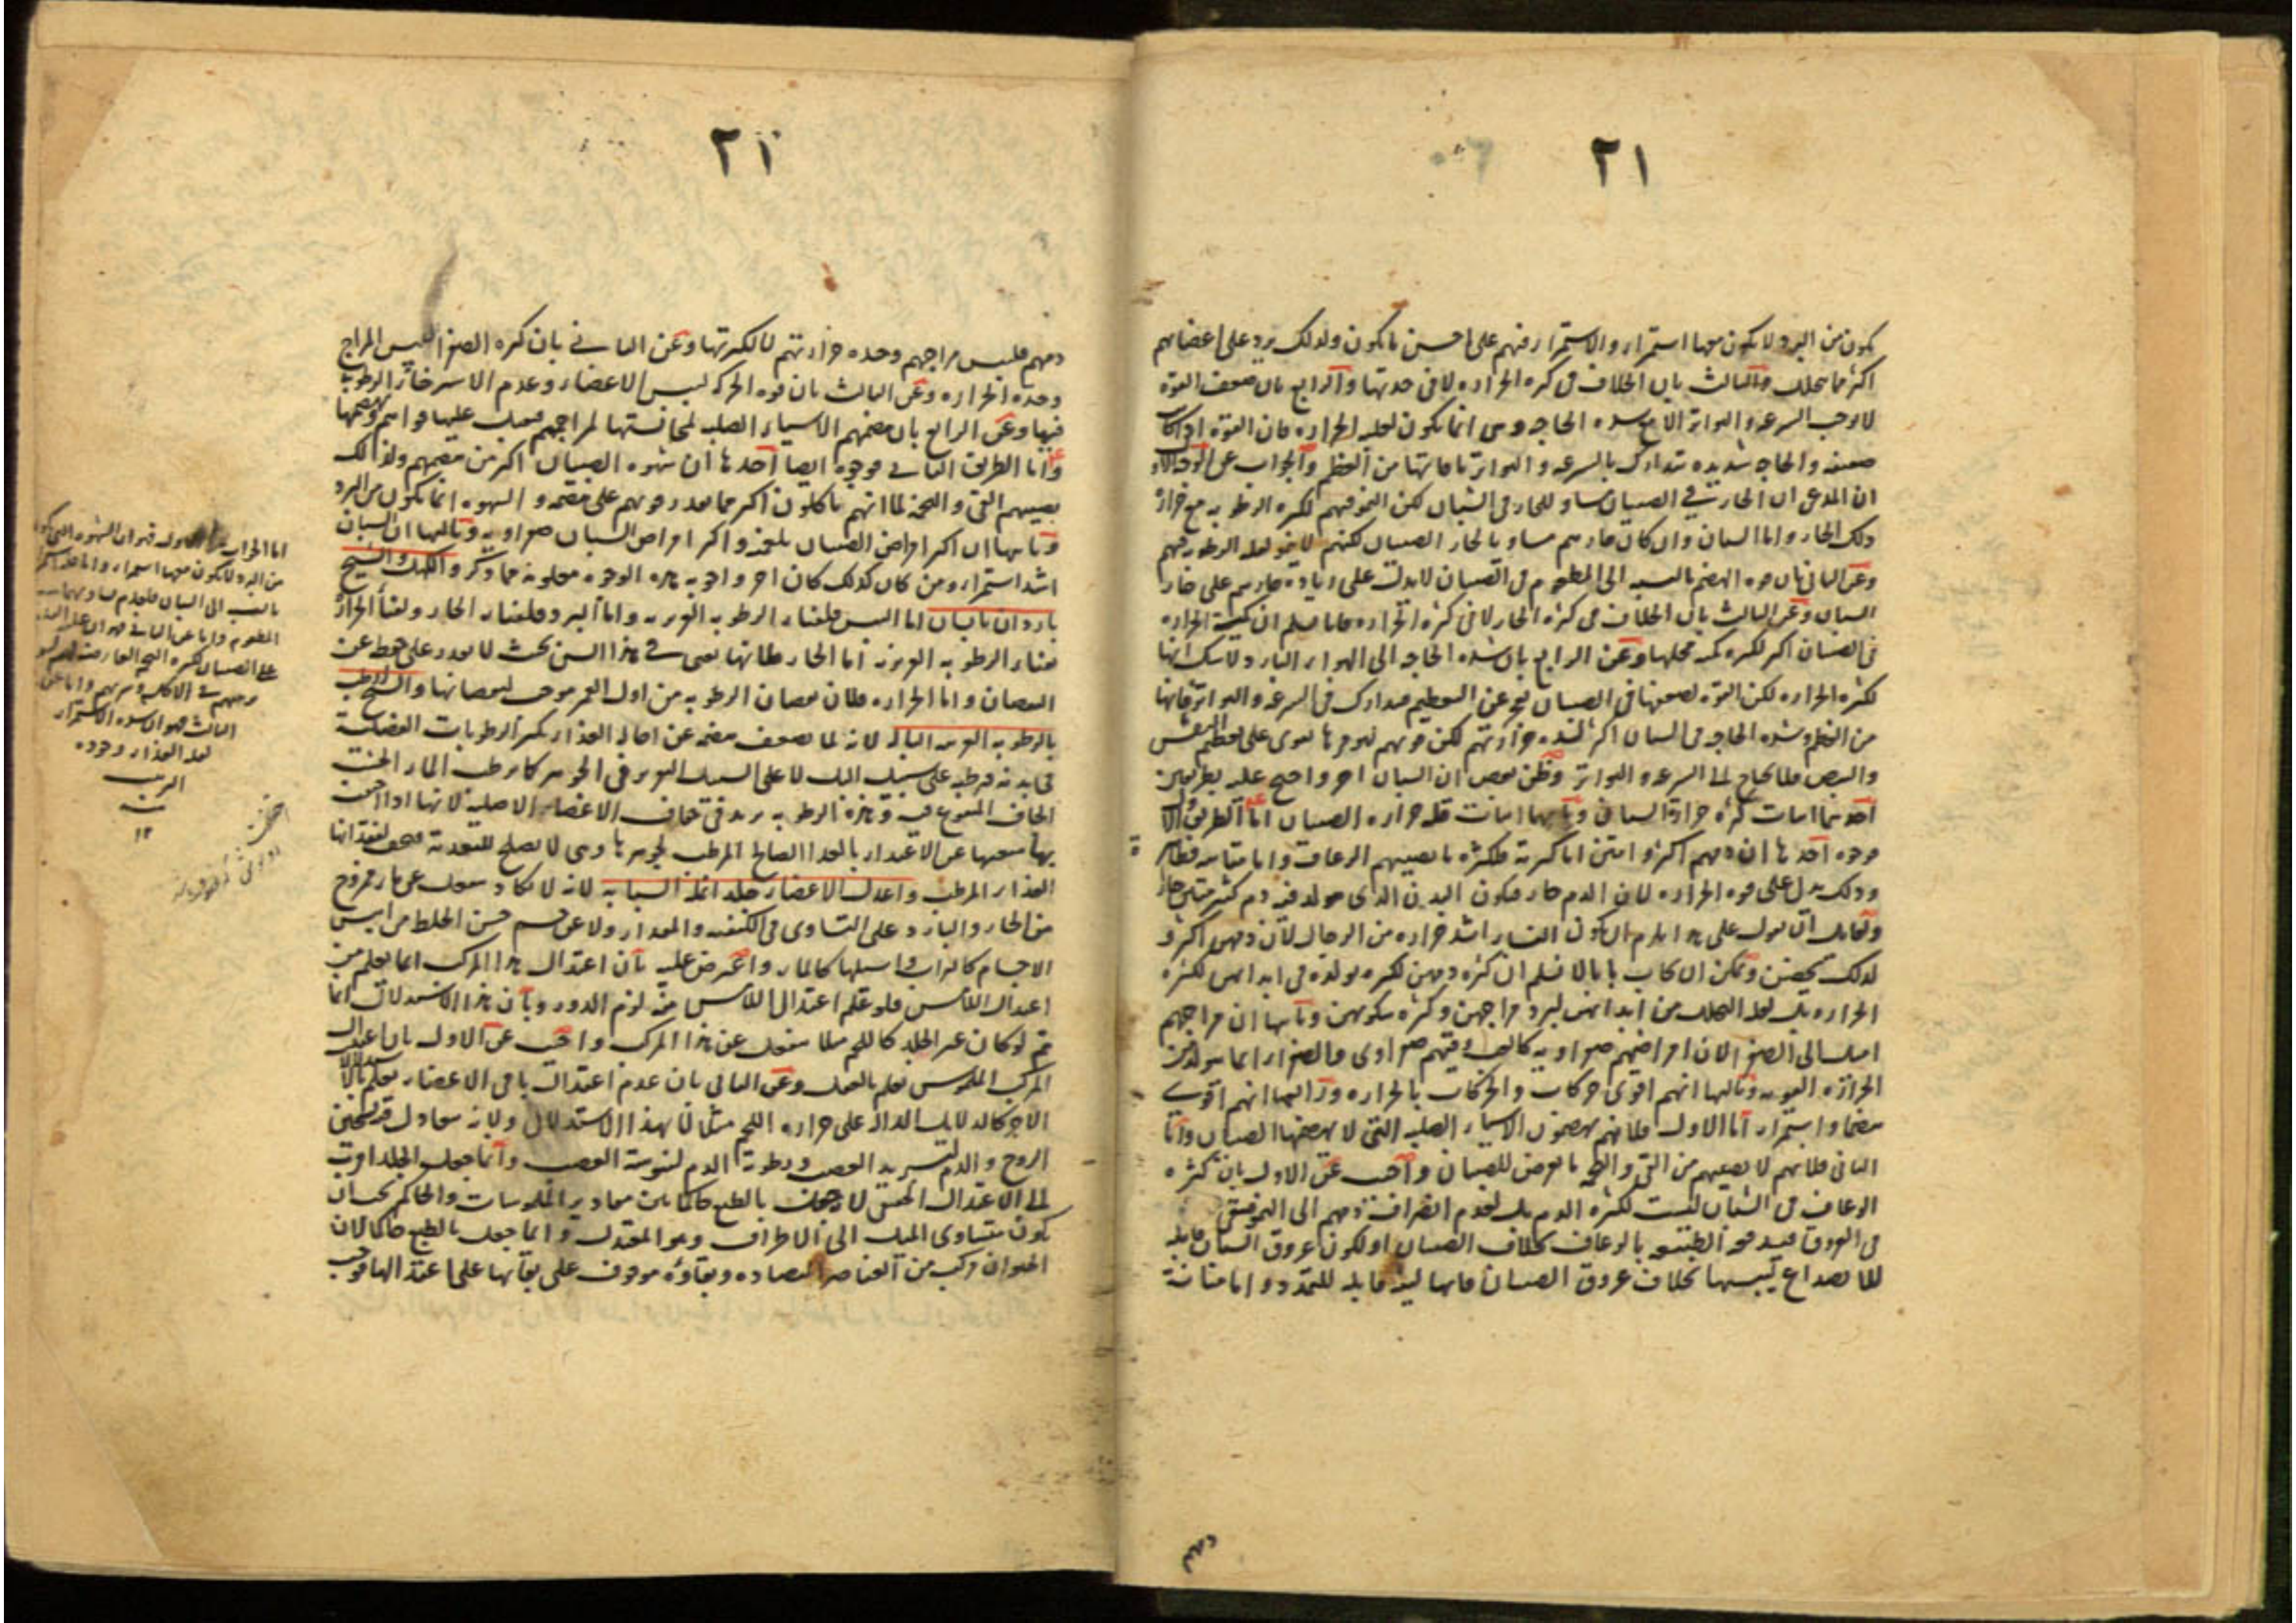 ٢١
يكون من البرد لا يكون معها استمرار والاستمرار فيهم على احسن ما يكون ولذلك يرد على اعضائهم
اكثر مما يتحلل والثالث بان الخلاف في كثرة الحرارة لا في حدتها والرابع بان ضعف القوة
لا يوجب السرعة والتواتر الا مع شدة الحاجة وهي انما يكون لغلبة الحرارة فان القوة اذا كانت
ضعيفة والحاجة شديدة تتدارك بالسرعة والتواتر ما فاتها من العظم والجواب عن الوجه الاول
ان المدعى ان الحار في الصبيان مساو للحار في الشبان لكن النمو فيهم لكثرة الرطوبة مع
ذلك الحار واما الشبان وان كان حارهم مساويا لحار الصبيان لكنهم لا نمو لقلة الرطوبة فيهم
وعن الثاني بان قوة الهضم بالنسبة الى المطعوم في الصبيان لا يدل على زيادة حارهم على حار
الشبان وعن الثالث بان الخلاف في كثرة الحار لا في كثرة الحرارة فانا نسلم ان كمية الحرارة
في الصبيان اكثر لكثرة كمية محلها وعن الرابع بان شدة الحاجة الى الهواء البارد لا شك انها
لكثرة الحرارة لكن القوة لضعفها في الصبيان تعجز عن التعظيم فيتدارك في السرعة والتواتر ما فاتها
من العظم وشدة الحاجة في الشبان اكثر لشدة حرارتهم لكن قوتهم لتوفرها تقوى على تعظيم النفس
والنبض فلا يحتاج الى السرعة والتواتر وظن بعض ان الشبان احر واحتج عليه بطريقين
احدهما اثبات كثرة حرارة الشبان وثانيهما اثبات قلة حرارة الصبيان اما الطريق الاول
فوجوه احدها ان دمهم اكثر وامتن اما كثرته فلكثرة ما يصيبهم الرعاف واما متانته فظاهر
وذلك يدل على قوة الحرارة لان الدم حار فيكون البدن الذي يتولد فيه دم كثير متين حار
ولقائل ان يقول على هذا يلزم ان يكون النساء اشد حرارة من الرجال لان دمهن اكثر و
لذلك يحضن ويمكن ان يجاب بانا لا نسلم ان كثرة دمهن لكثرة تولده في ابدانهن لكثرة
الحرارة بل لقلة التحلل من ابدانهن لبرد مزاجهن وكثرة سكونهن وثانيها ان مزاجهم
اميل الى الصفراء لان امراضهم صفراوية كالغب وقيئهم صفراوي والصفراء انما يتولد من
الحرارة القوية وثالثها انهم اقوى حركات والحركات بالحرارة ورابعها انهم اقوى
هضما واستمراء اما الاول فلانهم يهضمون الاشياء الصلبة التي لا يهضمها الصبيان واما
الثاني فلانهم لا يصيبهم من القيء والتخمة ما يعرض للصبيان واجيب عن الاول بان كثرة
الرعاف في الشبان ليست لكثرة الدم بل لعدم انصراف دمهم الى النمو فيبقى
في العروق فيدفعه الطبيعة بالرعاف بخلاف الصبيان او لكون عروق الشبان قابلة
للانصداع ليبسها بخلاف عروق الصبيان فانها لينة قابلة للتمدد واما متانة
٢١
دمهم فليبس مزاجهم وحدة حرارتهم لا لكثرتها وعن الثاني بان كثرة الصفراء ليبس المزاج
وحدة الحرارة وعن الثالث بان قوة الحركة ليبس الاعضاء وعدم الاسترخاء الرطوبي
فيها وعن الرابع بان هضمهم الاشياء الصلبة لمجانستها لمزاجهم
واما الطريق الثاني فوجوه ايضا احدها ان شهوة الصبيان اكثر من هضمهم ولذلك
يصيبهم القيء والتخمة لما انهم ياكلون اكثر مما يقدر قوتهم على هضمه والشهوة انما يكون من البرد
وثانيها ان اكثر امراض الصبيان بلغمية واكثر امراض الشبان صفراوية وثالثها ان الشبان
اشد استمراء ومن كان كذلك كان احر واجوبة هذه الوجوه معلومة مما ذكر والكهل والشيخ
باردان يابسان اما اليبس فلفناء الرطوبة الغريزية واما البرد فلفناء الحار ولفناء الحرارة
بفناء الرطوبة الغريزية اما الحار فلانها تفنى في هذا السن بحيث لا يقدر على حفظه عن
النقصان واما الحرارة فلان نقصان الرطوبة من اول العمر موجب لنقصانها والشيخ رطب
بالرطوبة الغريبة البالة لانه لما يضعف هضمه عن احالة الغذاء يكثر الرطوبات الفضلية
في بدنه فيرطب على سبيل البل لا على السبيل الغريزي في الجوهر كما يرطب الماء الخشب
الجاف المنقوع فيه وهذه الرطوبة يزيد في جفاف الاعضاء الاصلية لانها اذا احتبست
بها منعتها عن الاغتذاء بالغذاء الصالح المرطب لجوهرها وهي لا يصلح للتغذية فيجف لفقدانها
الغذاء المرطب واعدل الاعضاء جلد انملة السبابة لانه لا يكاد ينفعل عن ماء ممزوج
من الحار والبارد على التساوي في الكيفية والمقدار ولا عن جسم حسن الخلط من ايبس
الاجسام كالتراب واسيلها كالماء واعترض عليه بان اعتدال هذا المركب انما يعلم من
اعتدال اللامس فلو علم اعتدال اللامس منه لزم الدور وبان هذا الاستدلال انما
يتم لو كان غير الجلد كاللحم مثلا ينفعل عن هذا المركب واجيب عن الاول بان اعتدال
المركب الملموس يعلم بالعمل وعن الثاني بان عدم اعتدال باقي الاعضاء يعلم بالدلائل
الاخر كالدلائل الدالة على حرارة اللحم مثلا لا بهذا الاستدلال ولانه يعادل فيه تسخين
الروح والدم لتبريد العصب ورطوبة الدم ليبوسة العصب وانما جعل الجلد اقرب
الى الاعتدال الحقيقي لا بالطبع حاكما بين مقادير الملموسات والحاكم يجب ان
يكون متساوي الميل الى الاطراف وهو المعتدل وانما جعل بالطبع حاكما لان
الحيوان مركب من العناصر المتضادة وبقاؤه موقوف على بقائها على اعتدالها فوجب
اما الجواب عن الاول فهو ان الشهوة التي يكون
من البرد لا يكون معها استمراء
بالنسبة الى الشبان فلعدم
المطعوم واما عن الثاني فهو ان
على الصبيان لكثرة التخم العارضة لهم
وحرصهم في الاكل
الثالث فهو ان شدة الاستمراء
لقلة الغذاء وجودة
الترتيب
١٢